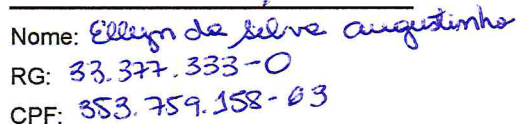 Nome: Ellyn da Silva Augustinho
RG: 33.377.333-0
CPF: 353.759.158-63